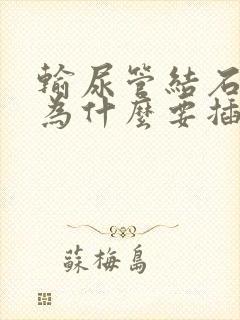 輸尿管結石
為什麼要插
蘇梅島